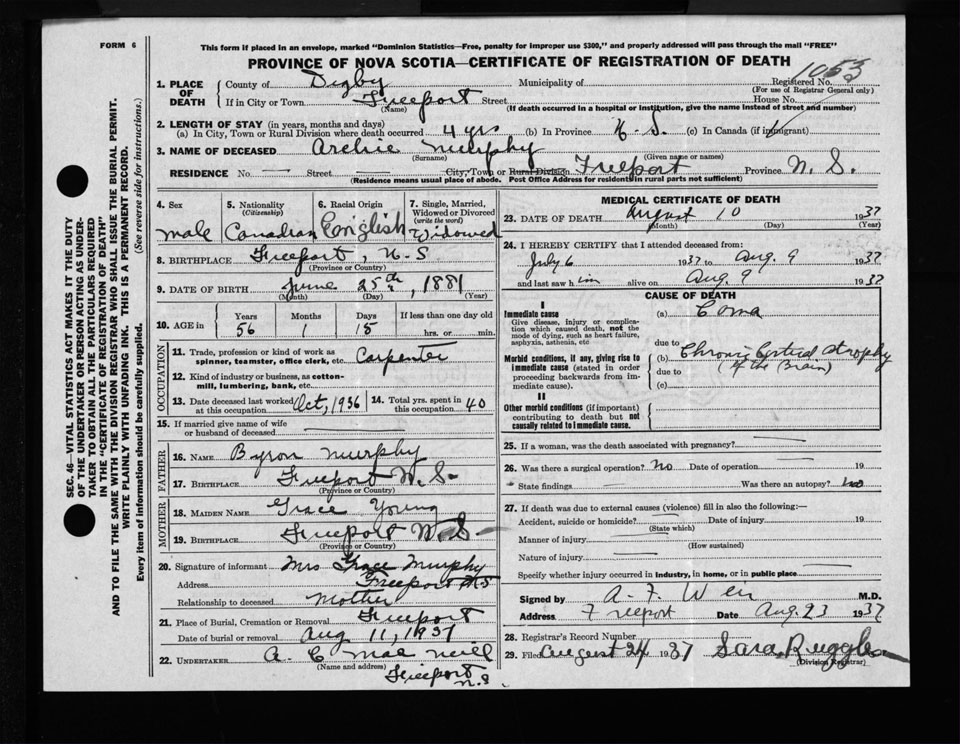 FORM 6
This form if placed in an envelope, marked "Dominion Statistics—Free, penalty for improper use $300," and properly addressed will pass through the mail "FREE"
PROVINCE OF NOVA SCOTIA—CERTIFICATE OF REGISTRATION OF DEATH
SEC. 46—VITAL STATISTICS ACT MAKES IT THE DUTY
OF THE UNDERTAKER OR PERSON ACTING AS UNDER-
TAKER TO OBTAIN ALL THE PARTICULARS REQUIRED
IN THE "CERTIFICATE OF REGISTRATION OF DEATH"
AND TO FILE THE SAME WITH THE DIVISION REGISTRAR WHO SHALL ISSUE THE BURIAL PERMIT.
WRITE PLAINLY WITH UNFADING INK. THIS IS A PERMANENT RECORD.
Every item of information should be carefully supplied. (See reverse side for instructions.)
1. PLACE OF DEATH
County of Digby Municipality of Registered No. 1053
(For use of Registrar General only)
If in City or Town Freeport Street House No.
(Name) (If death occurred in a hospital or institution, give the name instead of street and number)
2. LENGTH OF STAY (in years, months and days)
(a) In City, Town or Rural Division where death occurred 4 yrs (b) In Province N. S. (c) In Canada (if immigrant)
3. NAME OF DECEASED Archie Murphy
(Surname) (Given name or names)
RESIDENCE No. — Street — City, Town or Rural Division Freeport Province N. S.
(Residence means usual place of abode. Post Office Address for residents in rural parts not sufficient)
4. Sex
male
5. Nationality
(Citizenship)
Canadian
6. Racial Origin
English
7. Single, Married,
Widowed or Divorced
(write the word)
Widowed
8. BIRTHPLACE Freeport, N. S
(Province or Country)
9. DATE OF BIRTH June 25th, 1881
(Month) (Day) (Year)
10. AGE in
Years Months Days If less than one day old
56 1 15 hrs. or min.
OCCUPATION
11. Trade, profession or kind of work as
spinner, teamster, office clerk, etc. Carpenter
12. Kind of industry or business, as cotton-
mill, lumbering, bank, etc.
13. Date deceased last worked
at this occupation Oct, 1936
14. Total yrs. spent in
this occupation 40
15. If married give name of wife
or husband of deceased
FATHER
16. NAME Byron Murphy
17. BIRTHPLACE Freeport N. S.
(Province or Country)
MOTHER
18. MAIDEN NAME Grace Young
19. BIRTHPLACE Freeport N. S.
(Province or Country)
20. Signature of informant Mrs Grace Murphy
Address Freeport N S
Relationship to deceased Mother
21. Place of Burial, Cremation or Removal Freeport
Date of burial or removal Aug 11, 1937
22. UNDERTAKER A. C MacNeill
(Name and address)
Freeport
N. S.
MEDICAL CERTIFICATE OF DEATH
23. DATE OF DEATH August 10 1937
(Month) (Day) (Year)
24. I HEREBY CERTIFY that I attended deceased from:
July 6 1937 to Aug. 9 1937
and last saw him alive on Aug. 9 1937
CAUSE OF DEATH
I
Immediate cause
Give disease, injury or complica-
tion which caused death, not the
mode of dying, such as heart failure,
asphyxia, asthenia, etc
(a) Coma
due to
Morbid conditions, if any, giving rise to
immediate cause (stated in order
proceeding backwards from im-
mediate cause).
(b) Chronic Cortical Atrophy
(of the Brain)
due to
(c)
II
Other morbid conditions (if important)
contributing to death but not
causally related to immediate cause.
25. If a woman, was the death associated with pregnancy? —
26. Was there a surgical operation? No Date of operation — 19
State findings — Was there an autopsy? No
27. If death was due to external causes (violence) fill in also the following:—
Accident, suicide or homicide? — Date of injury — 19
(State which)
Manner of injury —
(How sustained)
Nature of injury —
Specify whether injury occurred in industry, in home, or in public place —
Signed by A. F. Weir M.D.
Address Freeport Date Aug. 23 1937
28. Registrar's Record Number
29. Filed August 24 1937 Sara Ruggles
(Division Registrar)